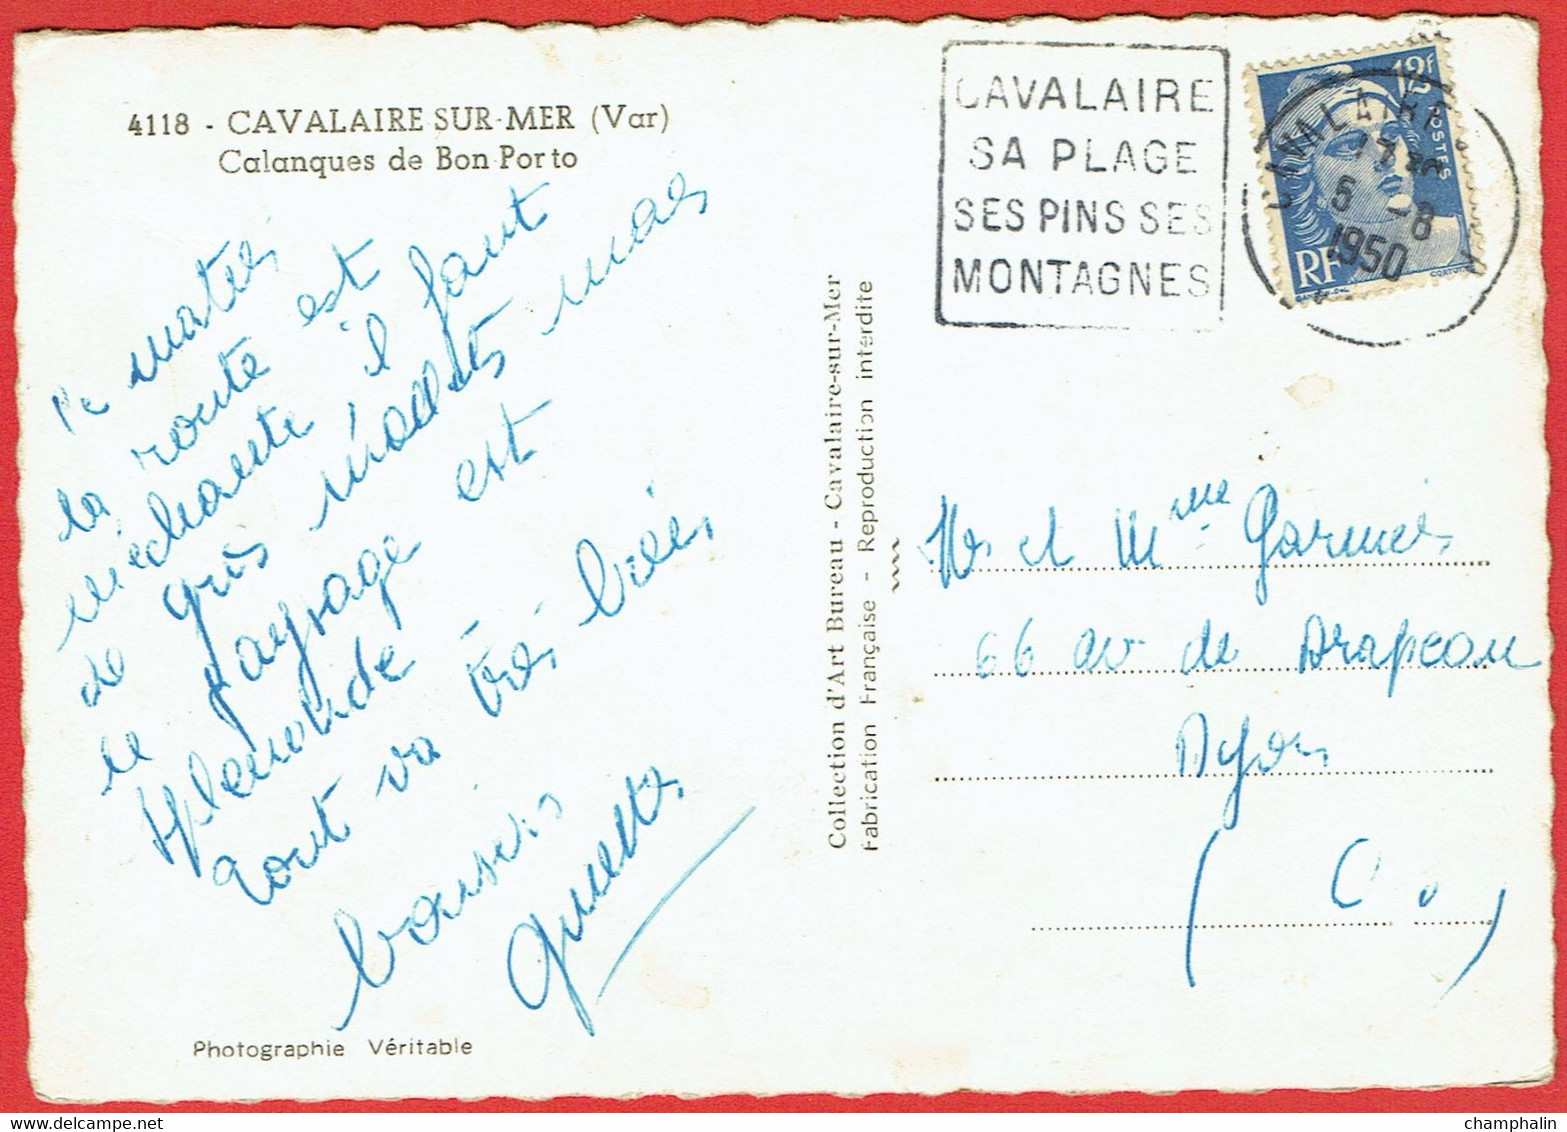 4118 - CAVALAIRE SUR-MER (Var)
Calanques de Bon Porto
la route est
méchante il faut
de gros mollets mais
le paysage est
splendide
tout va très bien,
baisers
CAVALAIRE
SA PLAGE
SES PINS SES
MONTAGNES
CAVALAIRE
5 -8
1950
12F
POSTES
RF
Collection d'Art Bureau - Cavalaire-sur-Mer
Fabrication Française - Reproduction interdite
Mr et Mme Garnier
66 av du Drapeau
Dijon
( C. o )
Photographie Véritable
champhalin